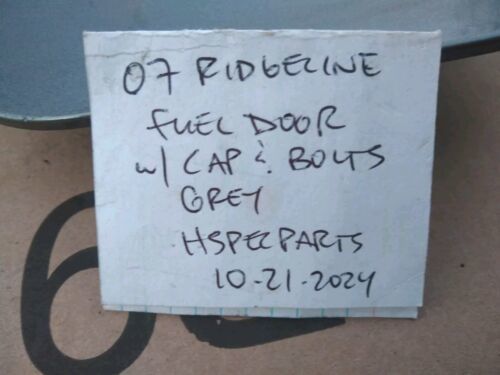 07 RIDGELINE
FUEL DOOR
w/ CAP & BOLTS
GREY
HSPECPARTS
10-21-2024